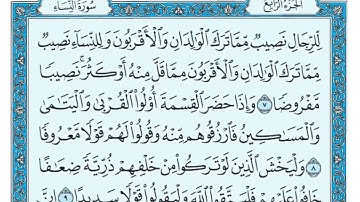 سُورَةُ النِّسَاءِ الجُزْءُ الرَّابِعُ
لِّلرِّجَالِ نَصِيبٌ مِّمَّا تَرَكَ ٱلْوَٰلِدَانِ وَٱلْأَقْرَبُونَ وَلِلنِّسَآءِ نَصِيبٌ
مِّمَّا تَرَكَ ٱلْوَٰلِدَانِ وَٱلْأَقْرَبُونَ مِمَّا قَلَّ مِنْهُ أَوْ كَثُرَ ۚ نَصِيبًا
مَّفْرُوضًا ٧ وَإِذَا حَضَرَ ٱلْقِسْمَةَ أُو۟لُوا۟ ٱلْقُرْبَىٰ وَٱلْيَتَٰمَىٰ
وَٱلْمَسَٰكِينُ فَٱرْزُقُوهُم مِّنْهُ وَقُولُوا۟ لَهُمْ قَوْلًا مَّعْرُوفًا
٨ وَلْيَخْشَ ٱلَّذِينَ لَوْ تَرَكُوا۟ مِنْ خَلْفِهِمْ ذُرِّيَّةً ضِعَٰفًا
خَافُوا۟ عَلَيْهِمْ فَلْيَتَّقُوا۟ ٱللَّهَ وَلْيَقُولُوا۟ قَوْلًا سَدِيدًا ٩ إِنَّ